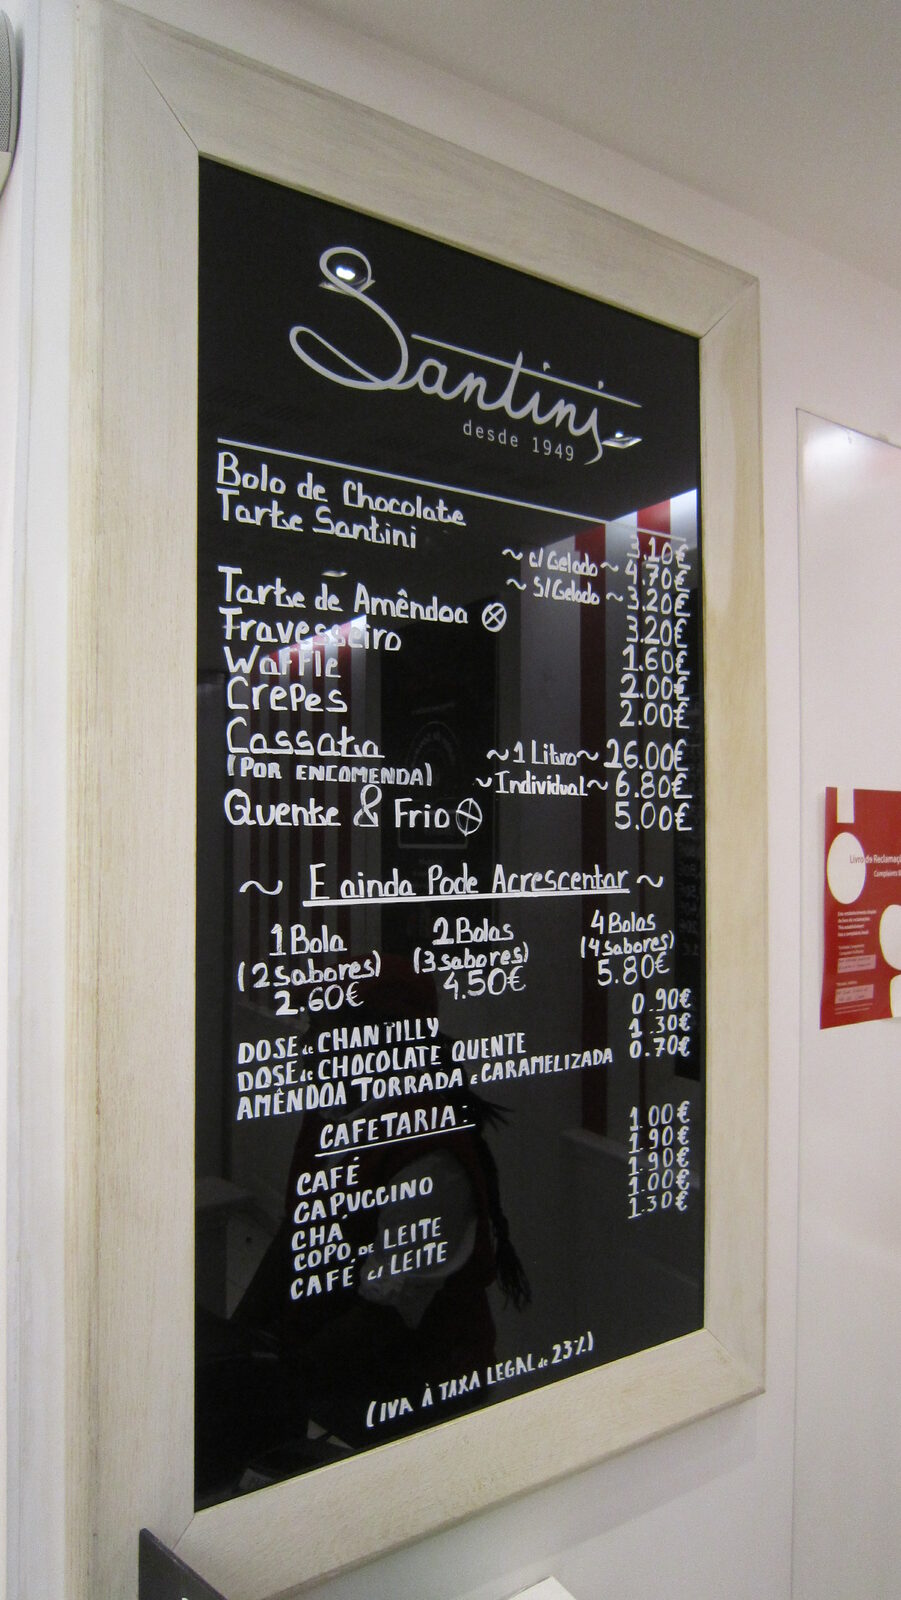 Santini
desde 1949
Bolo de Chocolate 3.10€
Tarte Santini ~ c/ Gelado ~ 4.70€
~ S/ Gelado ~ 3.20€
Tarte de Amêndoa 3.20€
Travesseiro 1.60€
Waffle 2.00€
Crepes 2.00€
Cassata ~ 1 Litro ~ 26.00€
(POR ENCOMENDA) ~ Individual ~ 6.80€
Quente & Frio 5.00€
~ E ainda Pode Acrescentar ~
1 Bola 2 Bolas 4 Bolas
(2 sabores) (3 sabores) (4 sabores)
2.60€ 4.50€ 5.80€
DOSE de CHANTILLY 0.90€
DOSE de CHOCOLATE QUENTE 1.30€
AMÊNDOA TORRADA E CARAMELIZADA 0.70€
CAFETARIA:
CAFÉ 1.00€
CAPUCCINO 1.90€
CHÁ 1.90€
COPO DE LEITE 1.00€
CAFÉ c/ LEITE 1.30€
(IVA À TAXA LEGAL de 23%)
Livro de
Complaints